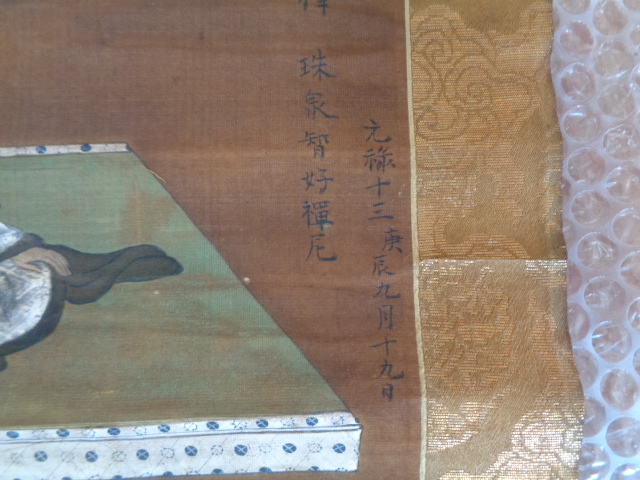 元祿十三庚辰九月十九日
珠泉智好禪尼